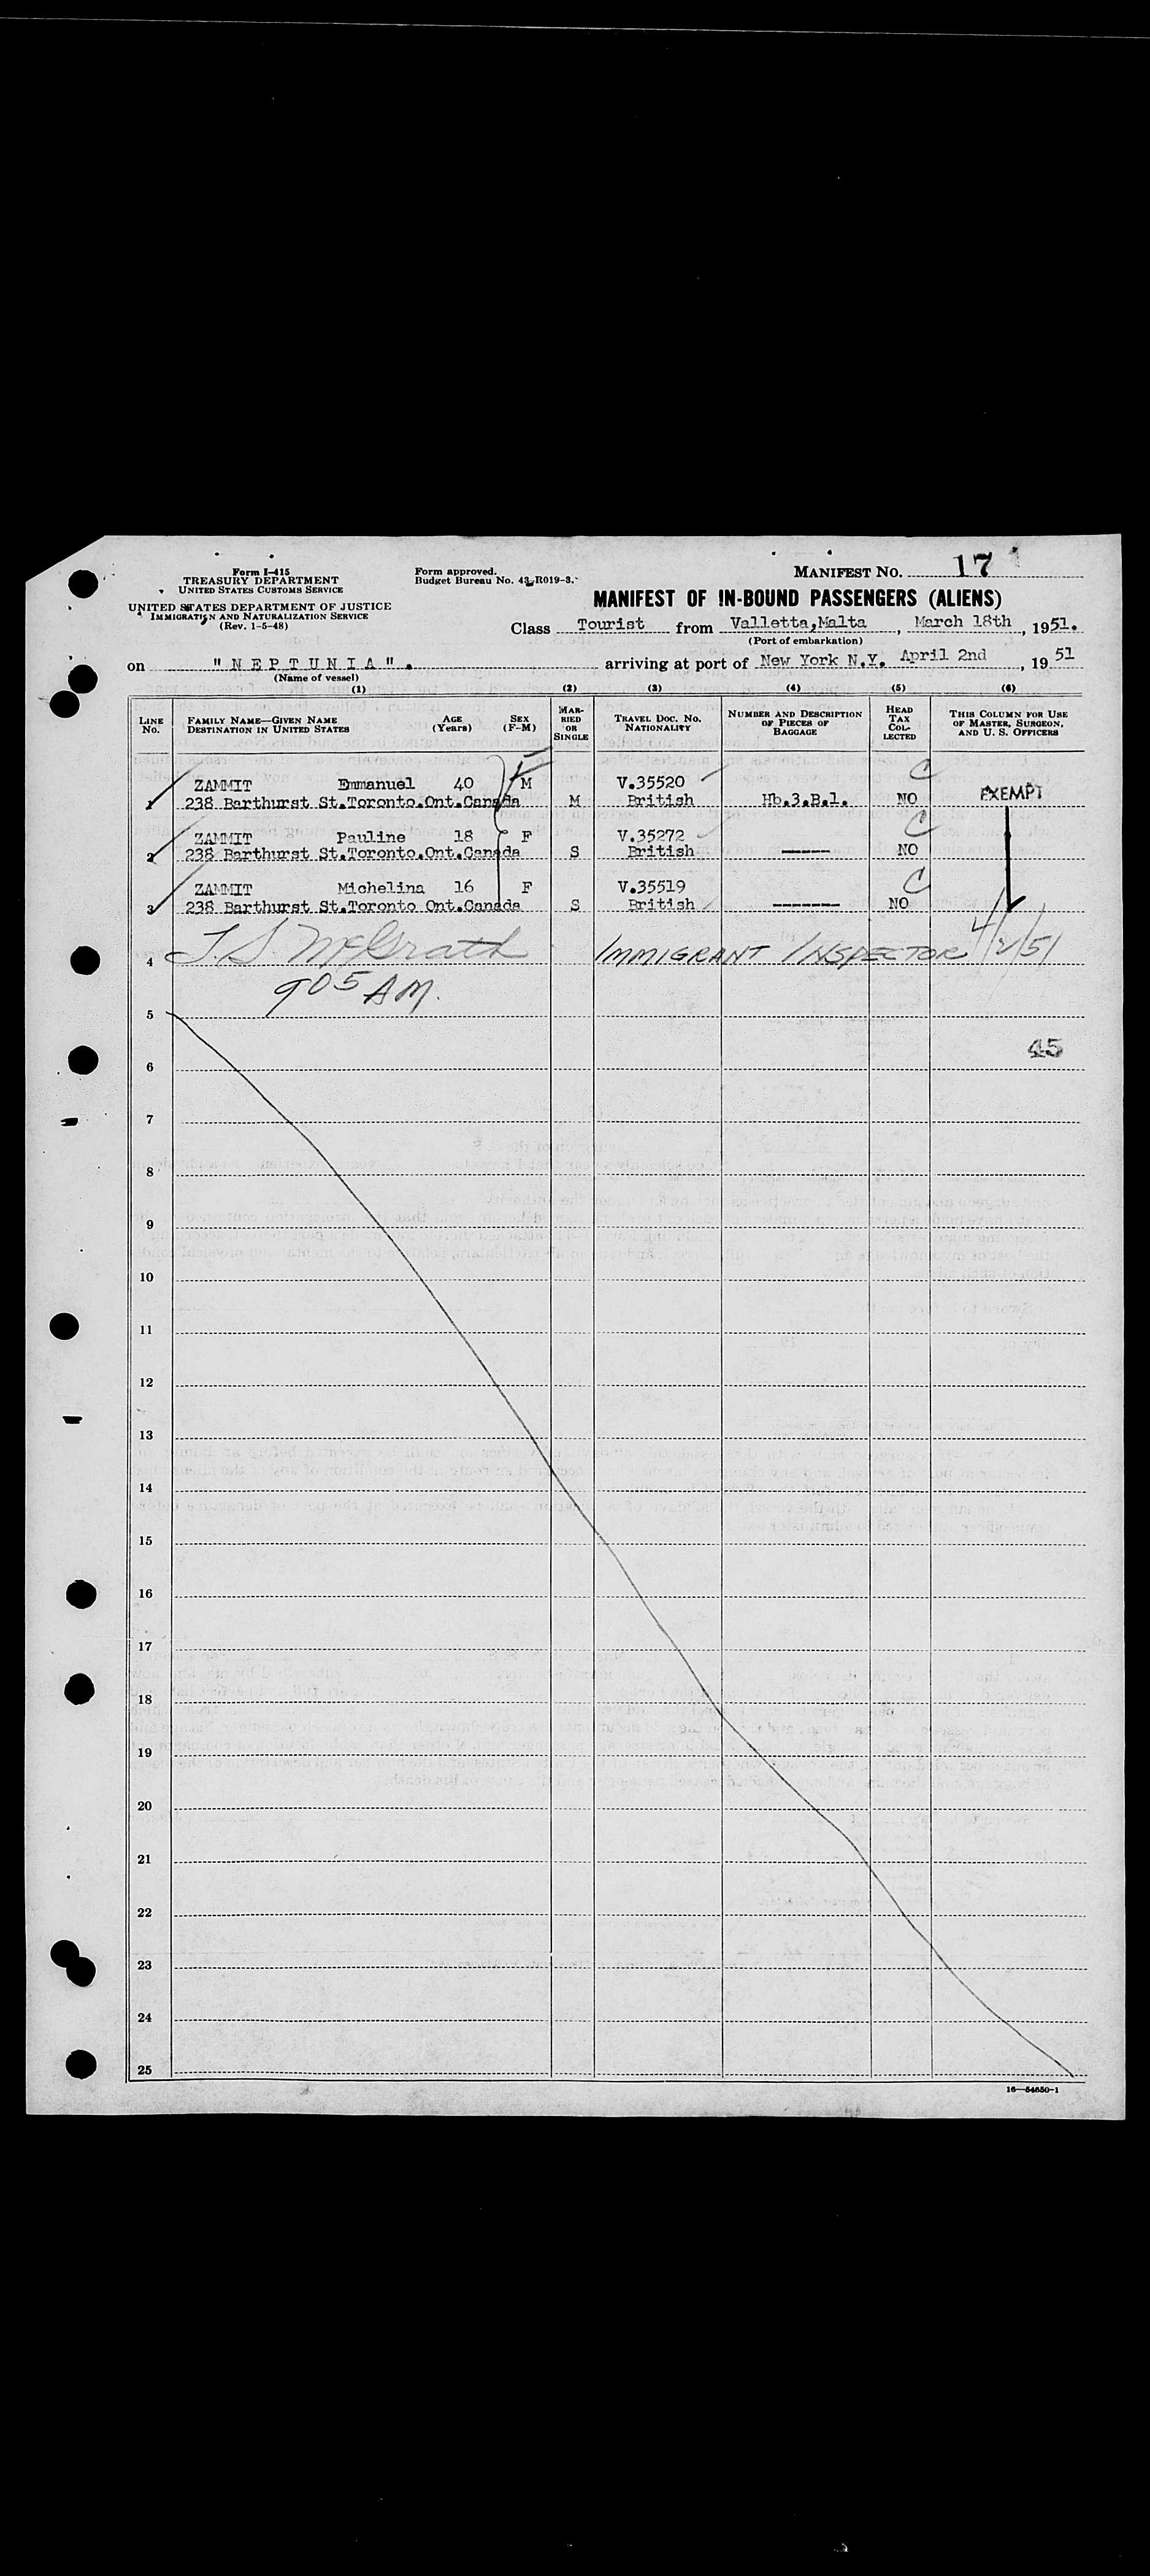 Form I-415
TREASURY DEPARTMENT
UNITED STATES CUSTOMS SERVICE
UNITED STATES DEPARTMENT OF JUSTICE
IMMIGRATION AND NATURALIZATION SERVICE
(Rev. 1-5-48)
Form approved.
Budget Bureau No. 43-R019-3.
MANIFEST NO. 17
MANIFEST OF IN-BOUND PASSENGERS (ALIENS)
Class Tourist from Valletta,Malta , March 18th , 1951.
(Port of embarkation)
on "NEPTUNIA". arriving at port of New York N.Y. April 2nd , 19 51
(Name of vessel)
(1) (2) (3) (4) (5) (6)
LINE NO. FAMILY NAME—GIVEN NAME DESTINATION IN UNITED STATES AGE (Years) SEX (F-M) MARRIED OR SINGLE TRAVEL DOC. NO. NATIONALITY NUMBER AND DESCRIPTION OF PIECES OF BAGGAGE HEAD TAX COLLECTED THIS COLUMN FOR USE OF MASTER, SURGEON, AND U. S. OFFICERS
ZAMMIT Emmanuel 40 M V.35520 C
1 238 Barthurst St.Toronto.Ont.Canada M British Hb.3.B.1. NO EXEMPT
ZAMMIT Pauline 18 F V.35272 C
2 238 Barthurst St.Toronto.Ont.Canada S British ----- NO
ZAMMIT Michelina 16 F V.35519 C
3 238 Barthurst St.Toronto Ont.Canada S British ------- NO
4 T.S. McGrath IMMIGRANT INSPECTOR 4/2/51
905 AM.
5
45
6
7
8
9
10
11
12
13
14
15
16
17
18
19
20
21
22
23
24
25
16—54650-1